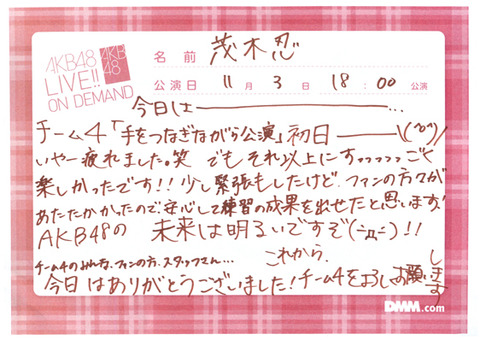 AKB48
LIVE!!
ON DEMAND
AKB
48
名前 茂木忍
公演日 11月3日 18:00 公演
今日は―――――…
チーム4「手をつなぎながら公演」初日―――\(^o^)/
いやー疲れました。笑 でもそれ以上にすっっっっっごく
楽しかったです!!少し緊張もしたけど、ファンの方々が
あたたかかったので、安心して練習の成果を出せたと思います!
AKB48の 未来は明るいですぞ(ﾆｭﾆ)!!
チーム4のみんな、ファンの方、スタッフさん…
今日はありがとうございました!これから、チーム4をよろしくお願いします
DMM.com